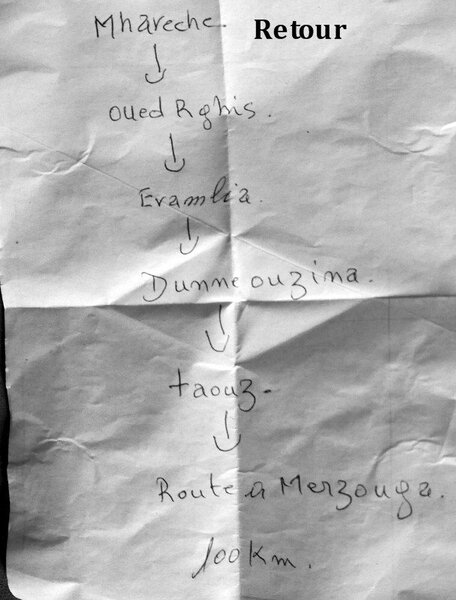 Mhareche
Retour
oued Rghis.
Eramlia.
Dunne ouzina.
taouz.
Route a Merzouga.
100 Km.